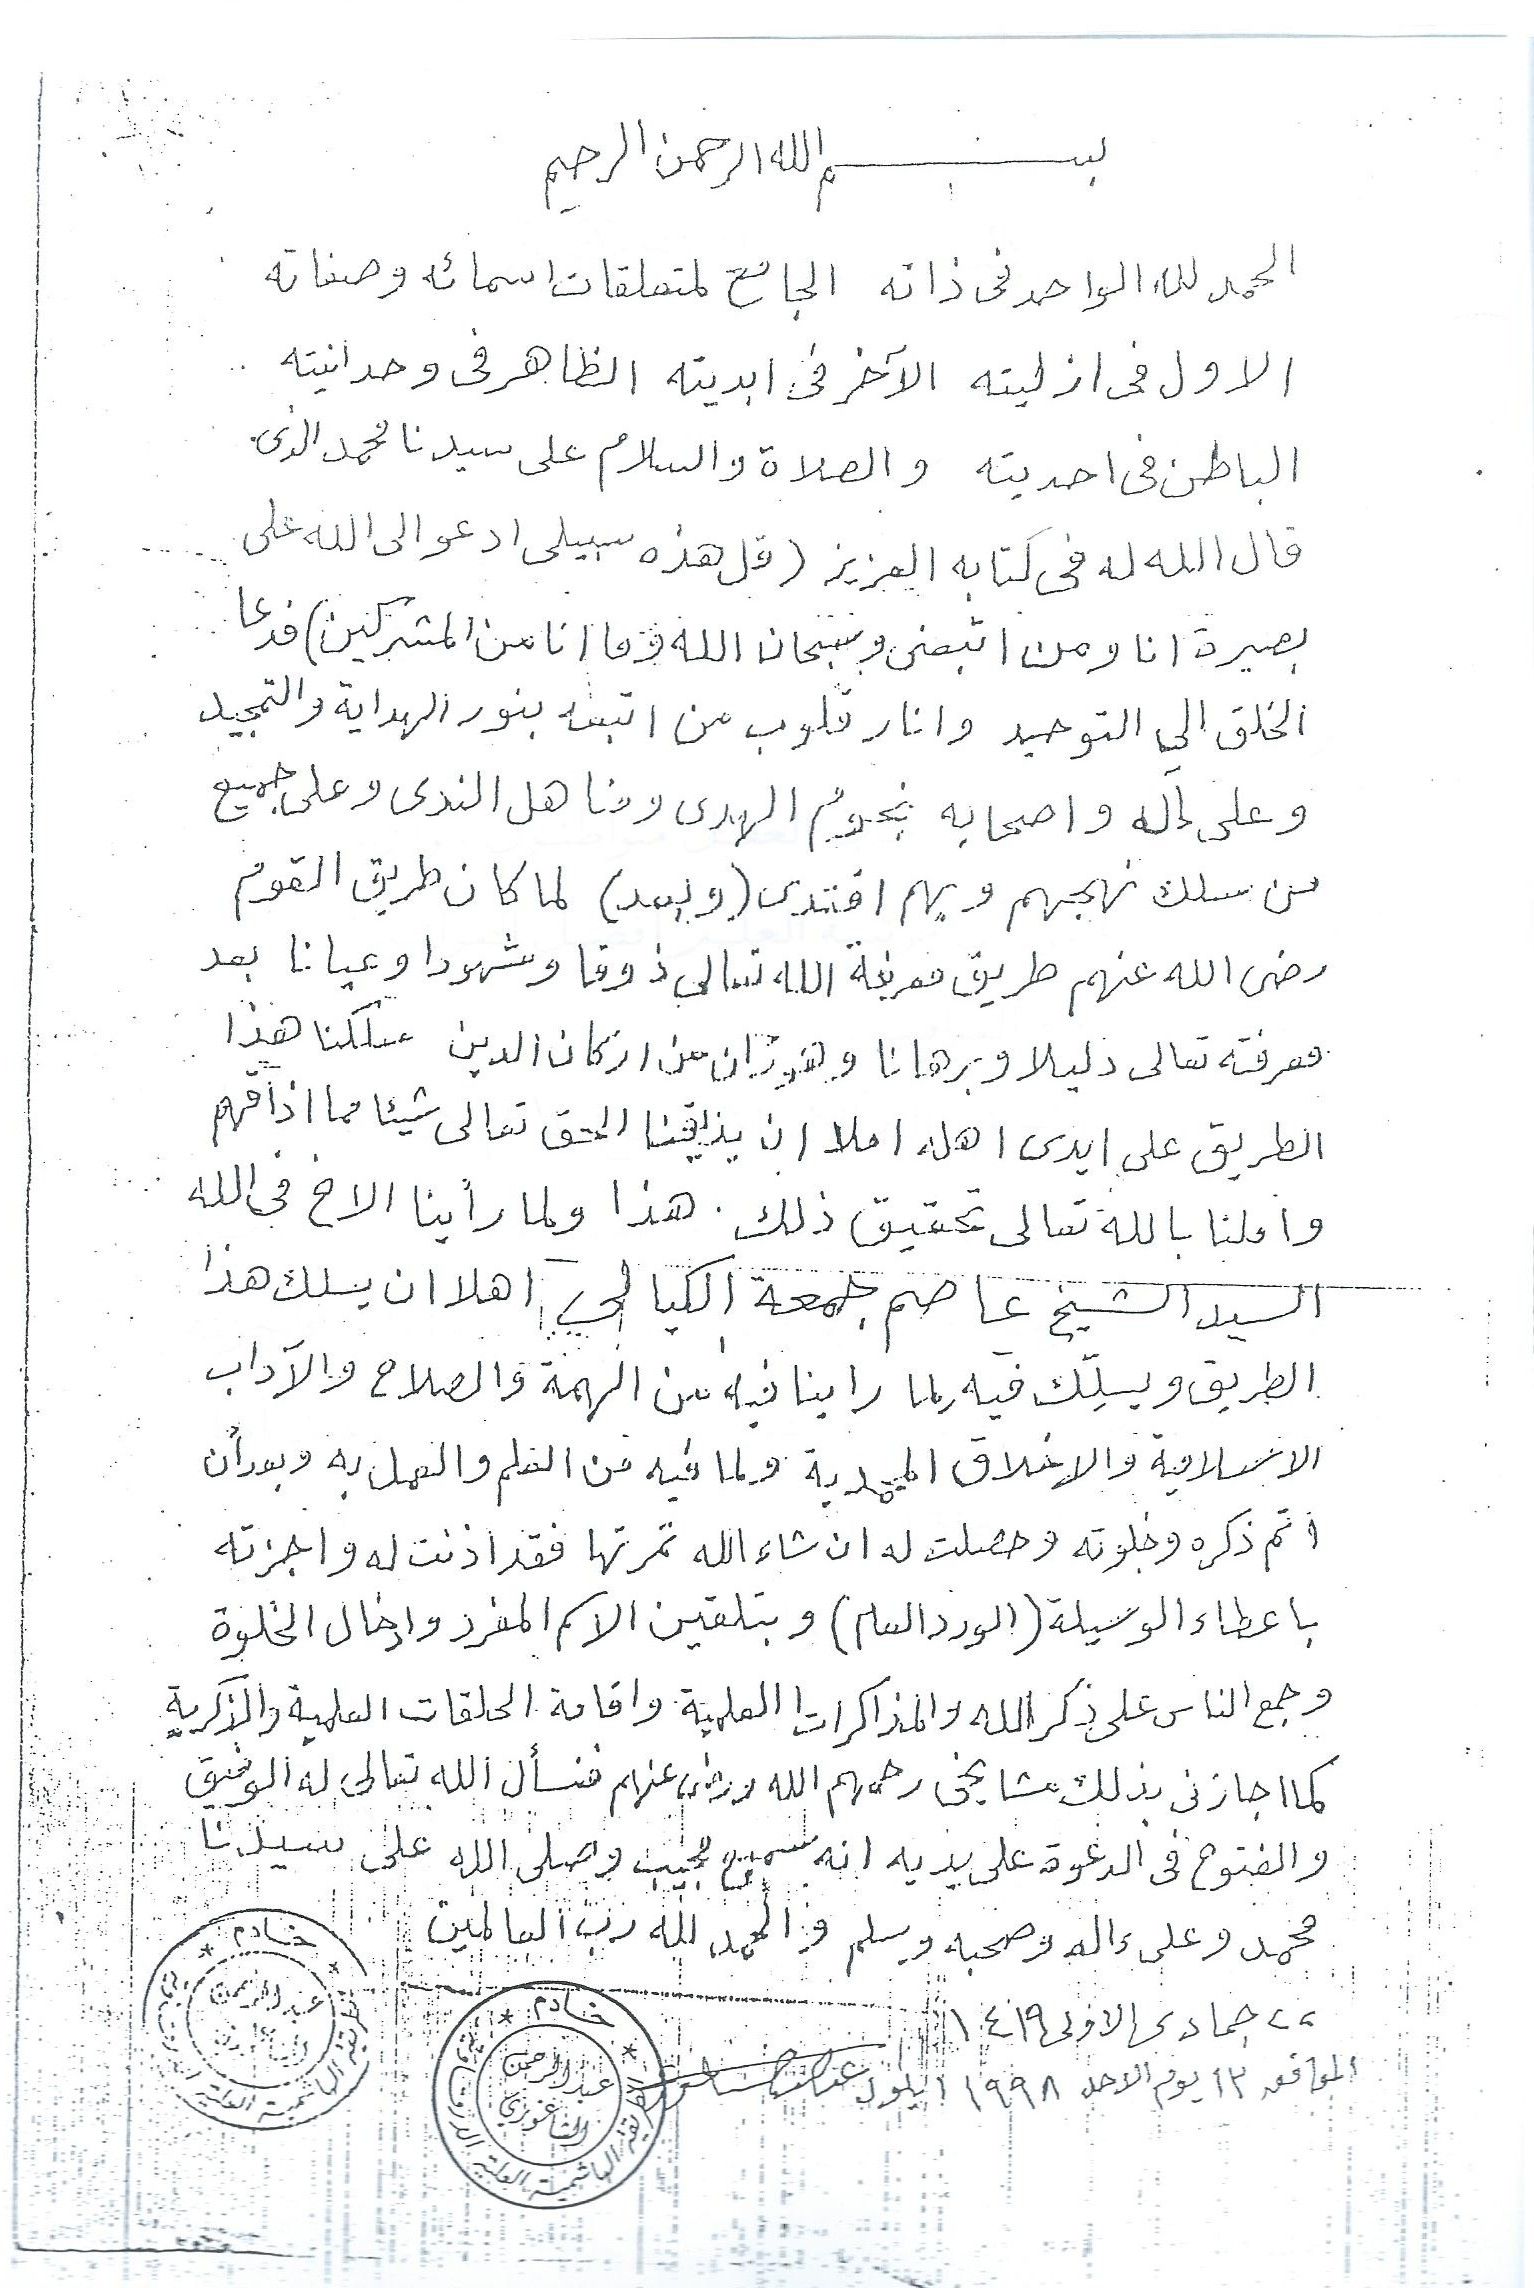 بسم الله الرحمن الرحيم
الحمد لله الواحد فى ذاته الجامع لمتعلقات اسمائه وصفاته
الاول فى ازليته الآخر فى ابديته الظاهر فى وحدانيته
الباطن فى احديته والصلاة والسلام على سيدنا محمد الذى
قال الله له فى كتابه العزيز (قل هذه سبيلى ادعو الى الله على
بصيرة انا ومن اتبعنى وسبحان الله وما انا من المشركين) فدعا
الخلق الي التوحيد وانار قلوب من اتبعه بنور الهداية والتمجيد
وعلى ءاله واصحابه نجوم الهدى ومناهل الندى وعلى جميع
من سلك نهجهم وبهم اقتدى (وبعد) لما كان طريق القوم
رضى الله عنهم طريق معرفة الله تعالى ذوقا وشهودا وعيانا بعد
معرفته تعالى دليلا وبرهانا وهذان من اركان الدين سلكنا هذا
الطريق على ايدى اهله املا ان يذيقنا الحق تعالى شيئا مما اذاقهم
واملنا بالله تعالى تحقيق ذلك . هذا ولما رأينا الاخ فى الله
السيد الشيخ عاصم جمعة الكيالي اهلا ان يسلك هذا
الطريق ويسلّك فيه لما راينا فيه من الهمة والصلاح والآداب
الاسلامية والاخلاق المحمدية ولما فيه من العلم والعمل به وبعد أن
اتم ذكره وخلوته وحصلت له ان شاء الله ثمرتها فقد اذنت له واجزته
باعطاء الوسيلة (الورد العام) وبتلقين الاسم المفرد وادخال الخلوة
وجمع الناس على ذكر الله والمذاكرات العلمية واقامة الحلقات العلمية والذكرية
كما اجازنى بذلك مشايخى رحمهم الله ورضى عنهم فنسأل الله تعالى له التوفيق
والفتوح فى الدعوة على يديه انه سميع مجيب وصلى الله على سيدنا
محمد وعلى ءاله وصحبه وسلم والحمد لله رب العالمين
٢٢ جمادى الاولى ١٤١٩
الموافق ١٣ يوم الاحد ١٩٩٨ ايلول
خادم
عبد الرحمن
الشاغوري
الطريقة الهاشمية العلية الدرقاوية
خادم
عبد الرحمن
الشاغوري
الطريقة الهاشمية العلية